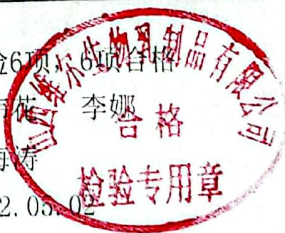 检6项,6项合格
李娜
海涛
2.05.02
山西维尔生物乳制品有限公司
合格
检验专用章